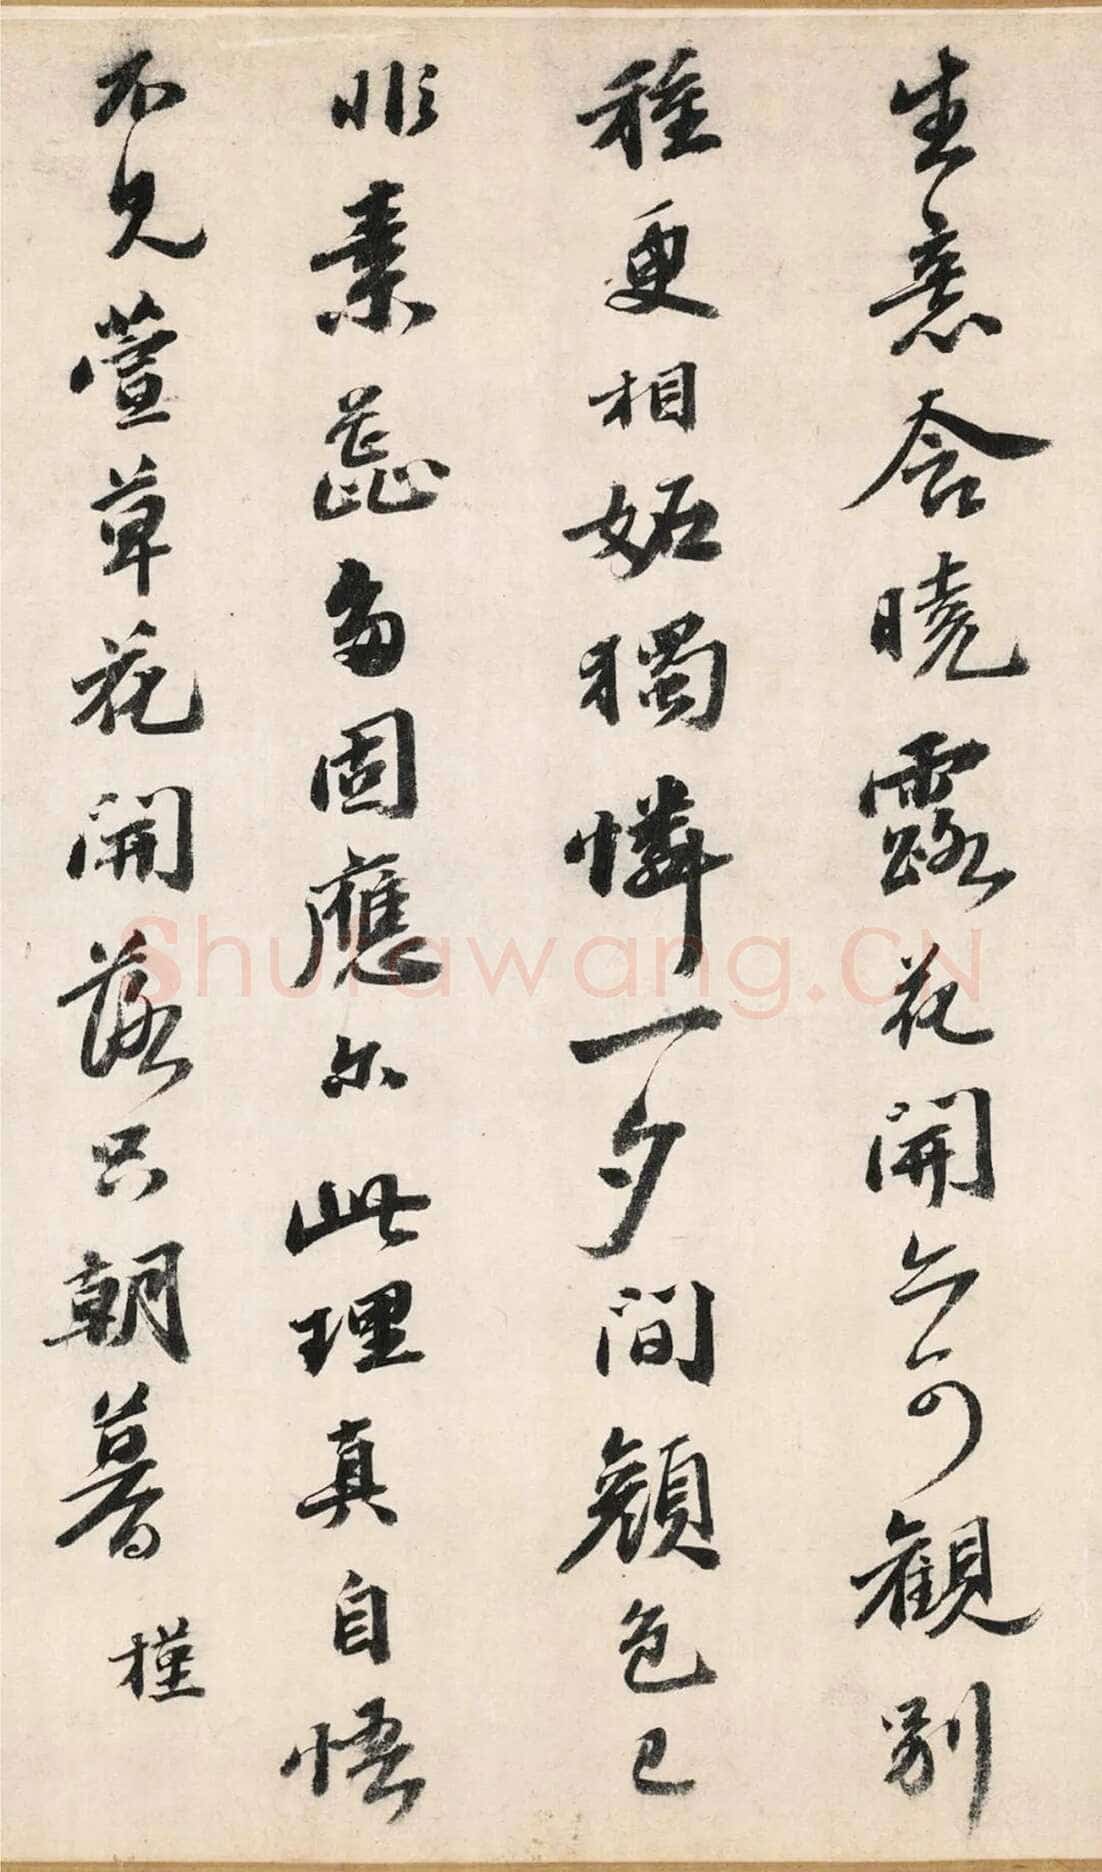 生意含曉露花開無可觀別
種更相妬獨憐一夕間顏色已
非素蕊多固應尔此理真自悟
不見萱草花開落只朝暮 槿
Shufawang.CN